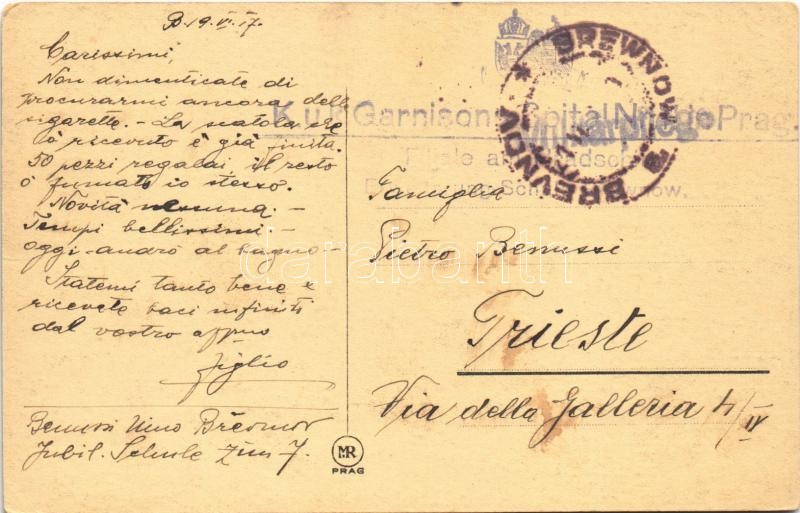 B 19. VI. 17.
Carissimi,
Non dimenticate di
procurarmi ancora delle
sigarette. - La scatola che
ò ricevuto è già finita.
50 pezzi regalai il resto
ò fumato io stesso.
Novità nessuna. -
Tempi bellissimi -
oggi andrò al bagno -
Statemi tanto bene e
ricevete baci infiniti
dal vostro
figlio
Benussi Nino
Jubil. Schule Zim 7.
MR
PRAG
K.u.K. Garnisons-Spital Nr. Prag.
Filiale
BREWNOW
BREVNOV
Famiglia
Pietro Benussi
Trieste
Via della Galleria 4/IV
darabanth